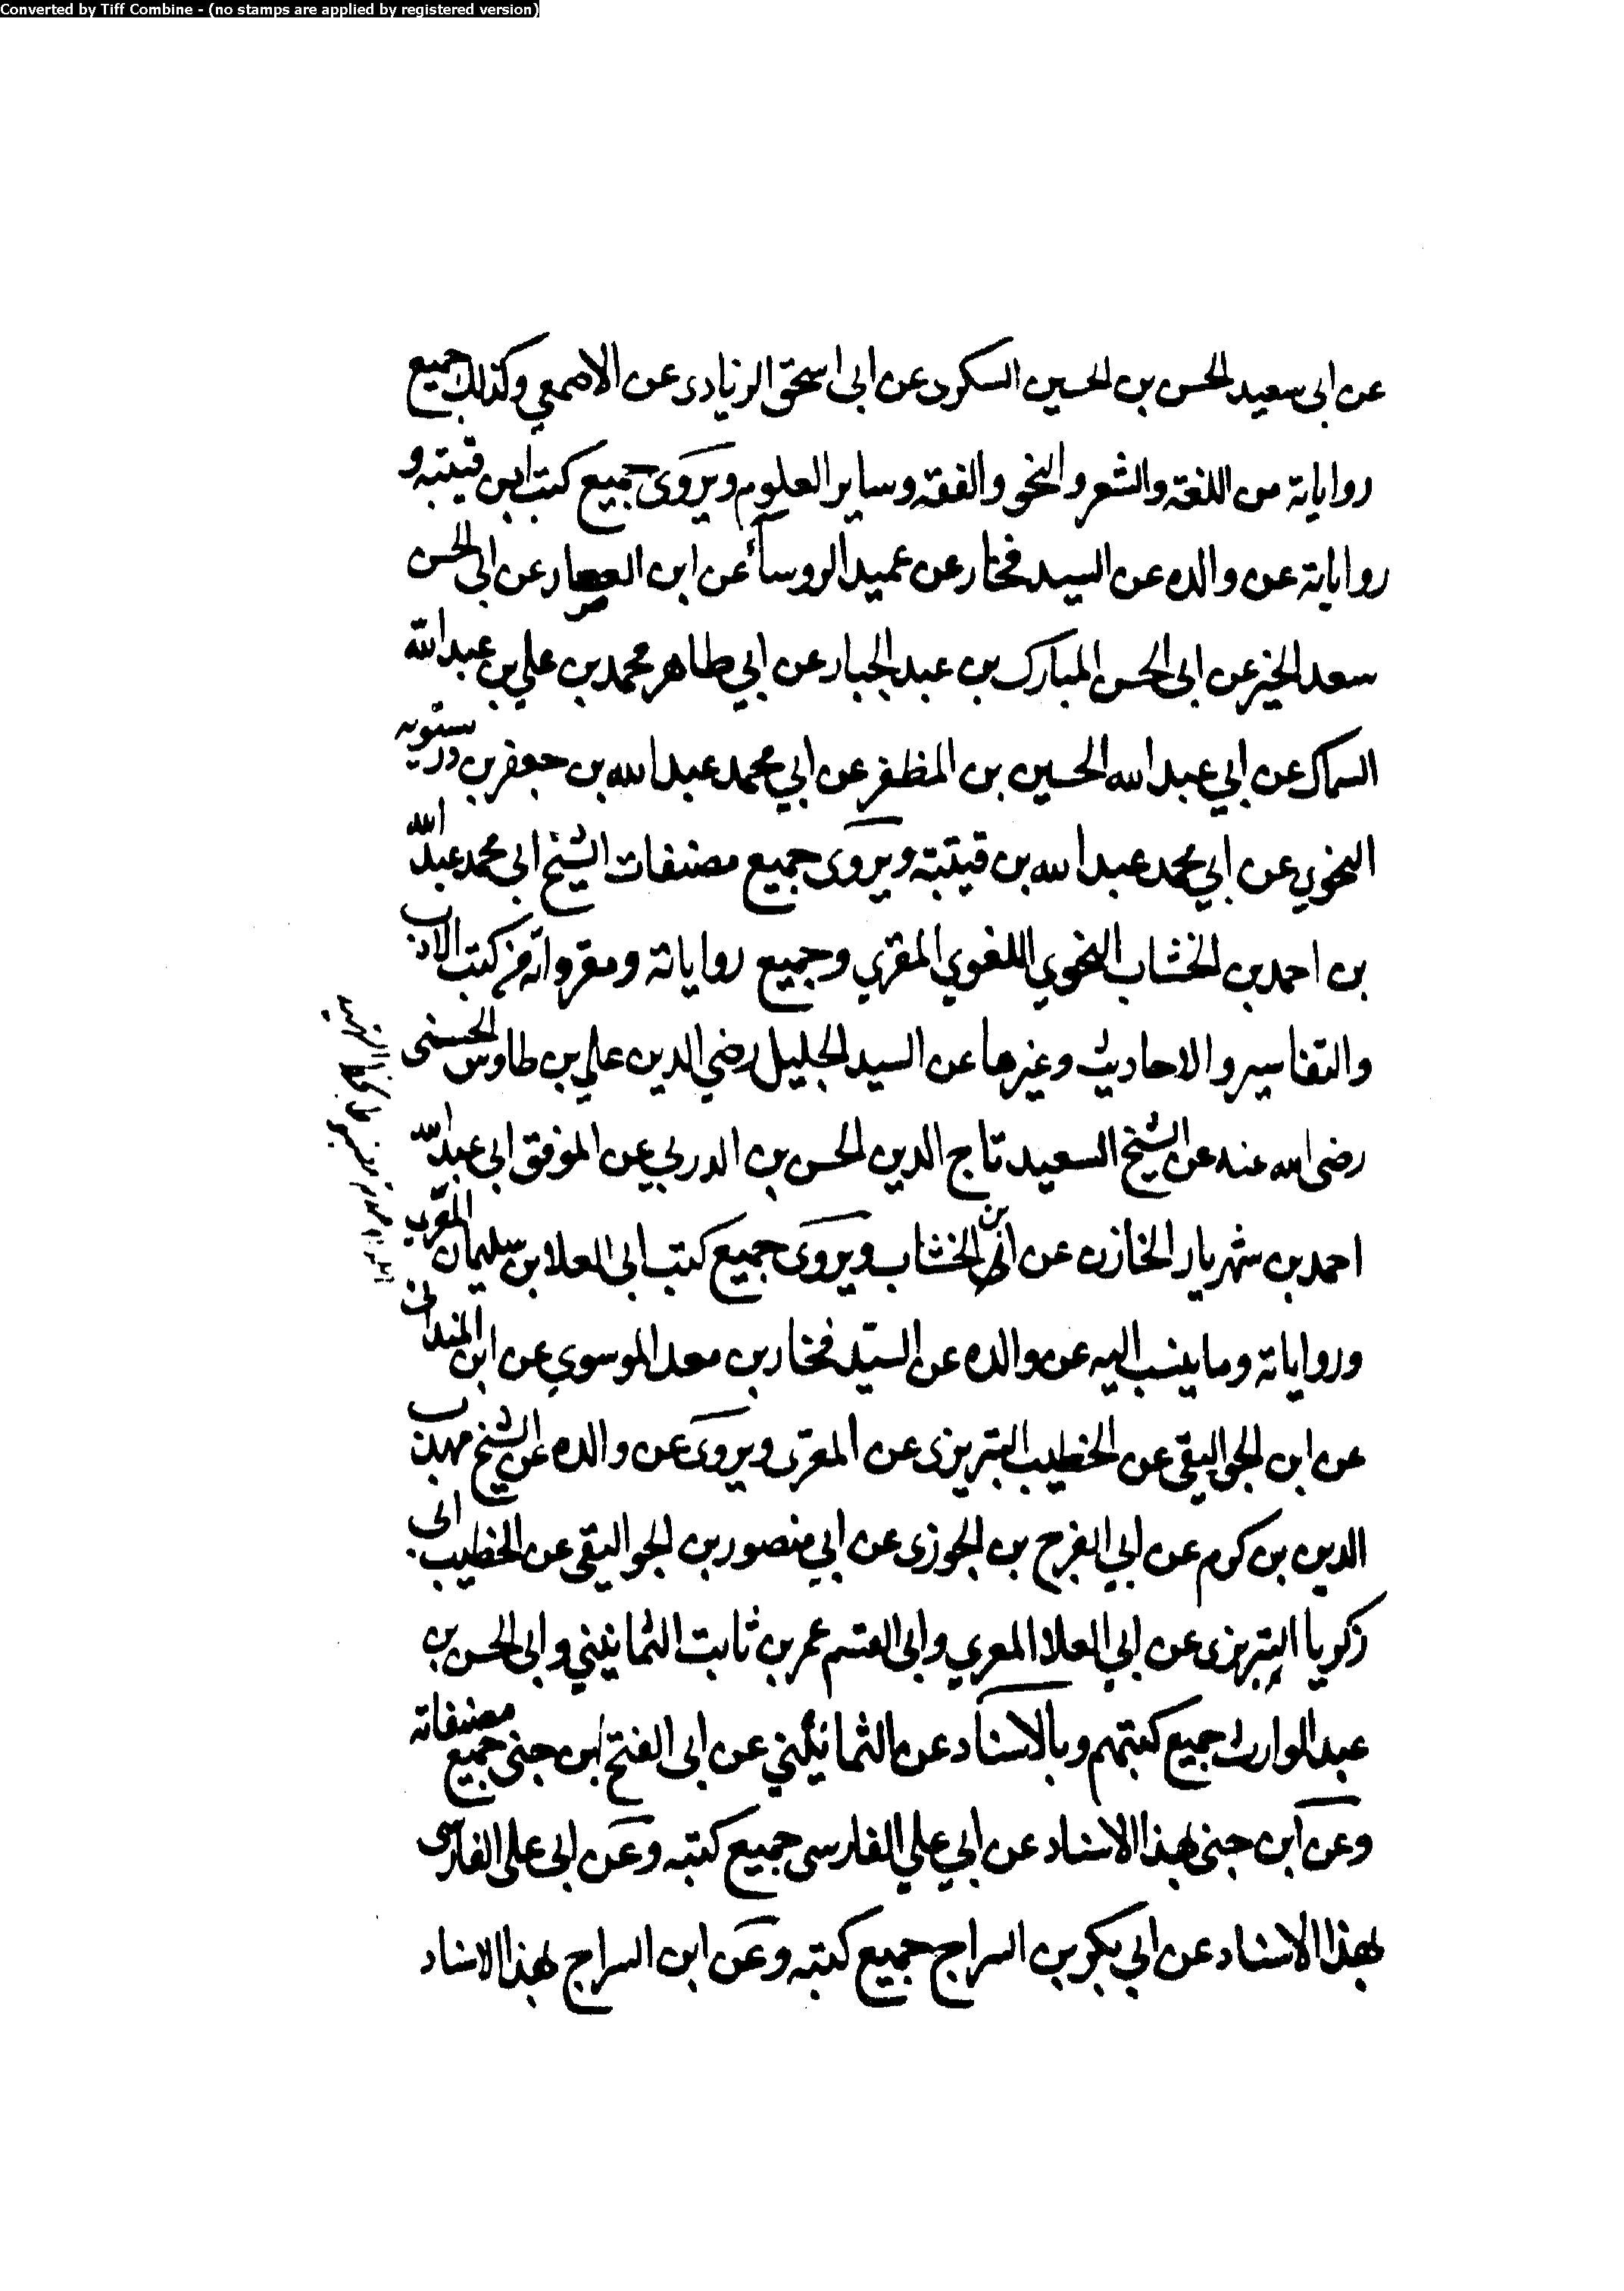 Converted by Tiff Combine - (no stamps are applied by registered version)
عن ابى سعيد الحسن بن الحسين السكرى عن ابى اسحق الزيادى عن الاصمعي وكذلك جميع
رواياته من اللغة والشعر والنحو والفقه وساير العلوم ويروى جميع كتب ابن قتيبة و
رواياته عن والده عن السيد فخار عن عميد الروسأ عن ابن العصار عن ابى الحسن
سعد الخير عن ابى الحسن المبارك بن عبد الجبار عن ابي طاهر محمد بن علي بن عبد الله
السماك عن ابي عبد الله الحسين بن المظفر عن ابي محمد عبد الله بن جعفر بن درستويه
النحوي عن ابي محمد عبد الله بن قيتبة ويروى جميع مصنفات الشيخ ابى محمد عبد الله
بن احمد بن الخشاب النحوي اللغوي المقري وجميع رواياته ومقرواته من كتب الادب
والتفاسير والاحاديث وغيرها عن السيد الجليل رضي الدين علي بن طاوس الحسنى
رضى الله عنه عن الشيخ السعيد تاج الدين الحسن بن الدربي عن الموفق ابى عبد الله
احمد بن شهريار الخازن عن ابن الخشاب ويروى جميع كتب ابى العلا بن سليمان المعري
ورواياته وما ينسب اليه عن والده عن السيد فخار بن معد الموسوي عن ابن المندائى
عن ابن الجواليقى عن الخطيب التبريزى عن المعرى ويروى عن والده عن الشيخ مهذب
الدين بن كرم عن ابي الفرج بن الجوزى عن ابي منصور بن الجواليقى عن الخطيب ابى
زكريا التبريزى عن ابي العلا المعري وابى القسم عمر بن ثابت الثمانيني وابى الحسن بن
عبد الوارث جميع كتبهم وبالاسناد عن الثمانيني عن ابى الفتح ابن جنى جميع مصنفاته
وعن ابن جنى بهذا الاسناد عن ابي علي الفارسى جميع كتبه وعن ابى على الفارسى
بهذا الاسناد عن ابي بكر بن السراج جميع كتبه وعن ابن السراج بهذا الاسناد